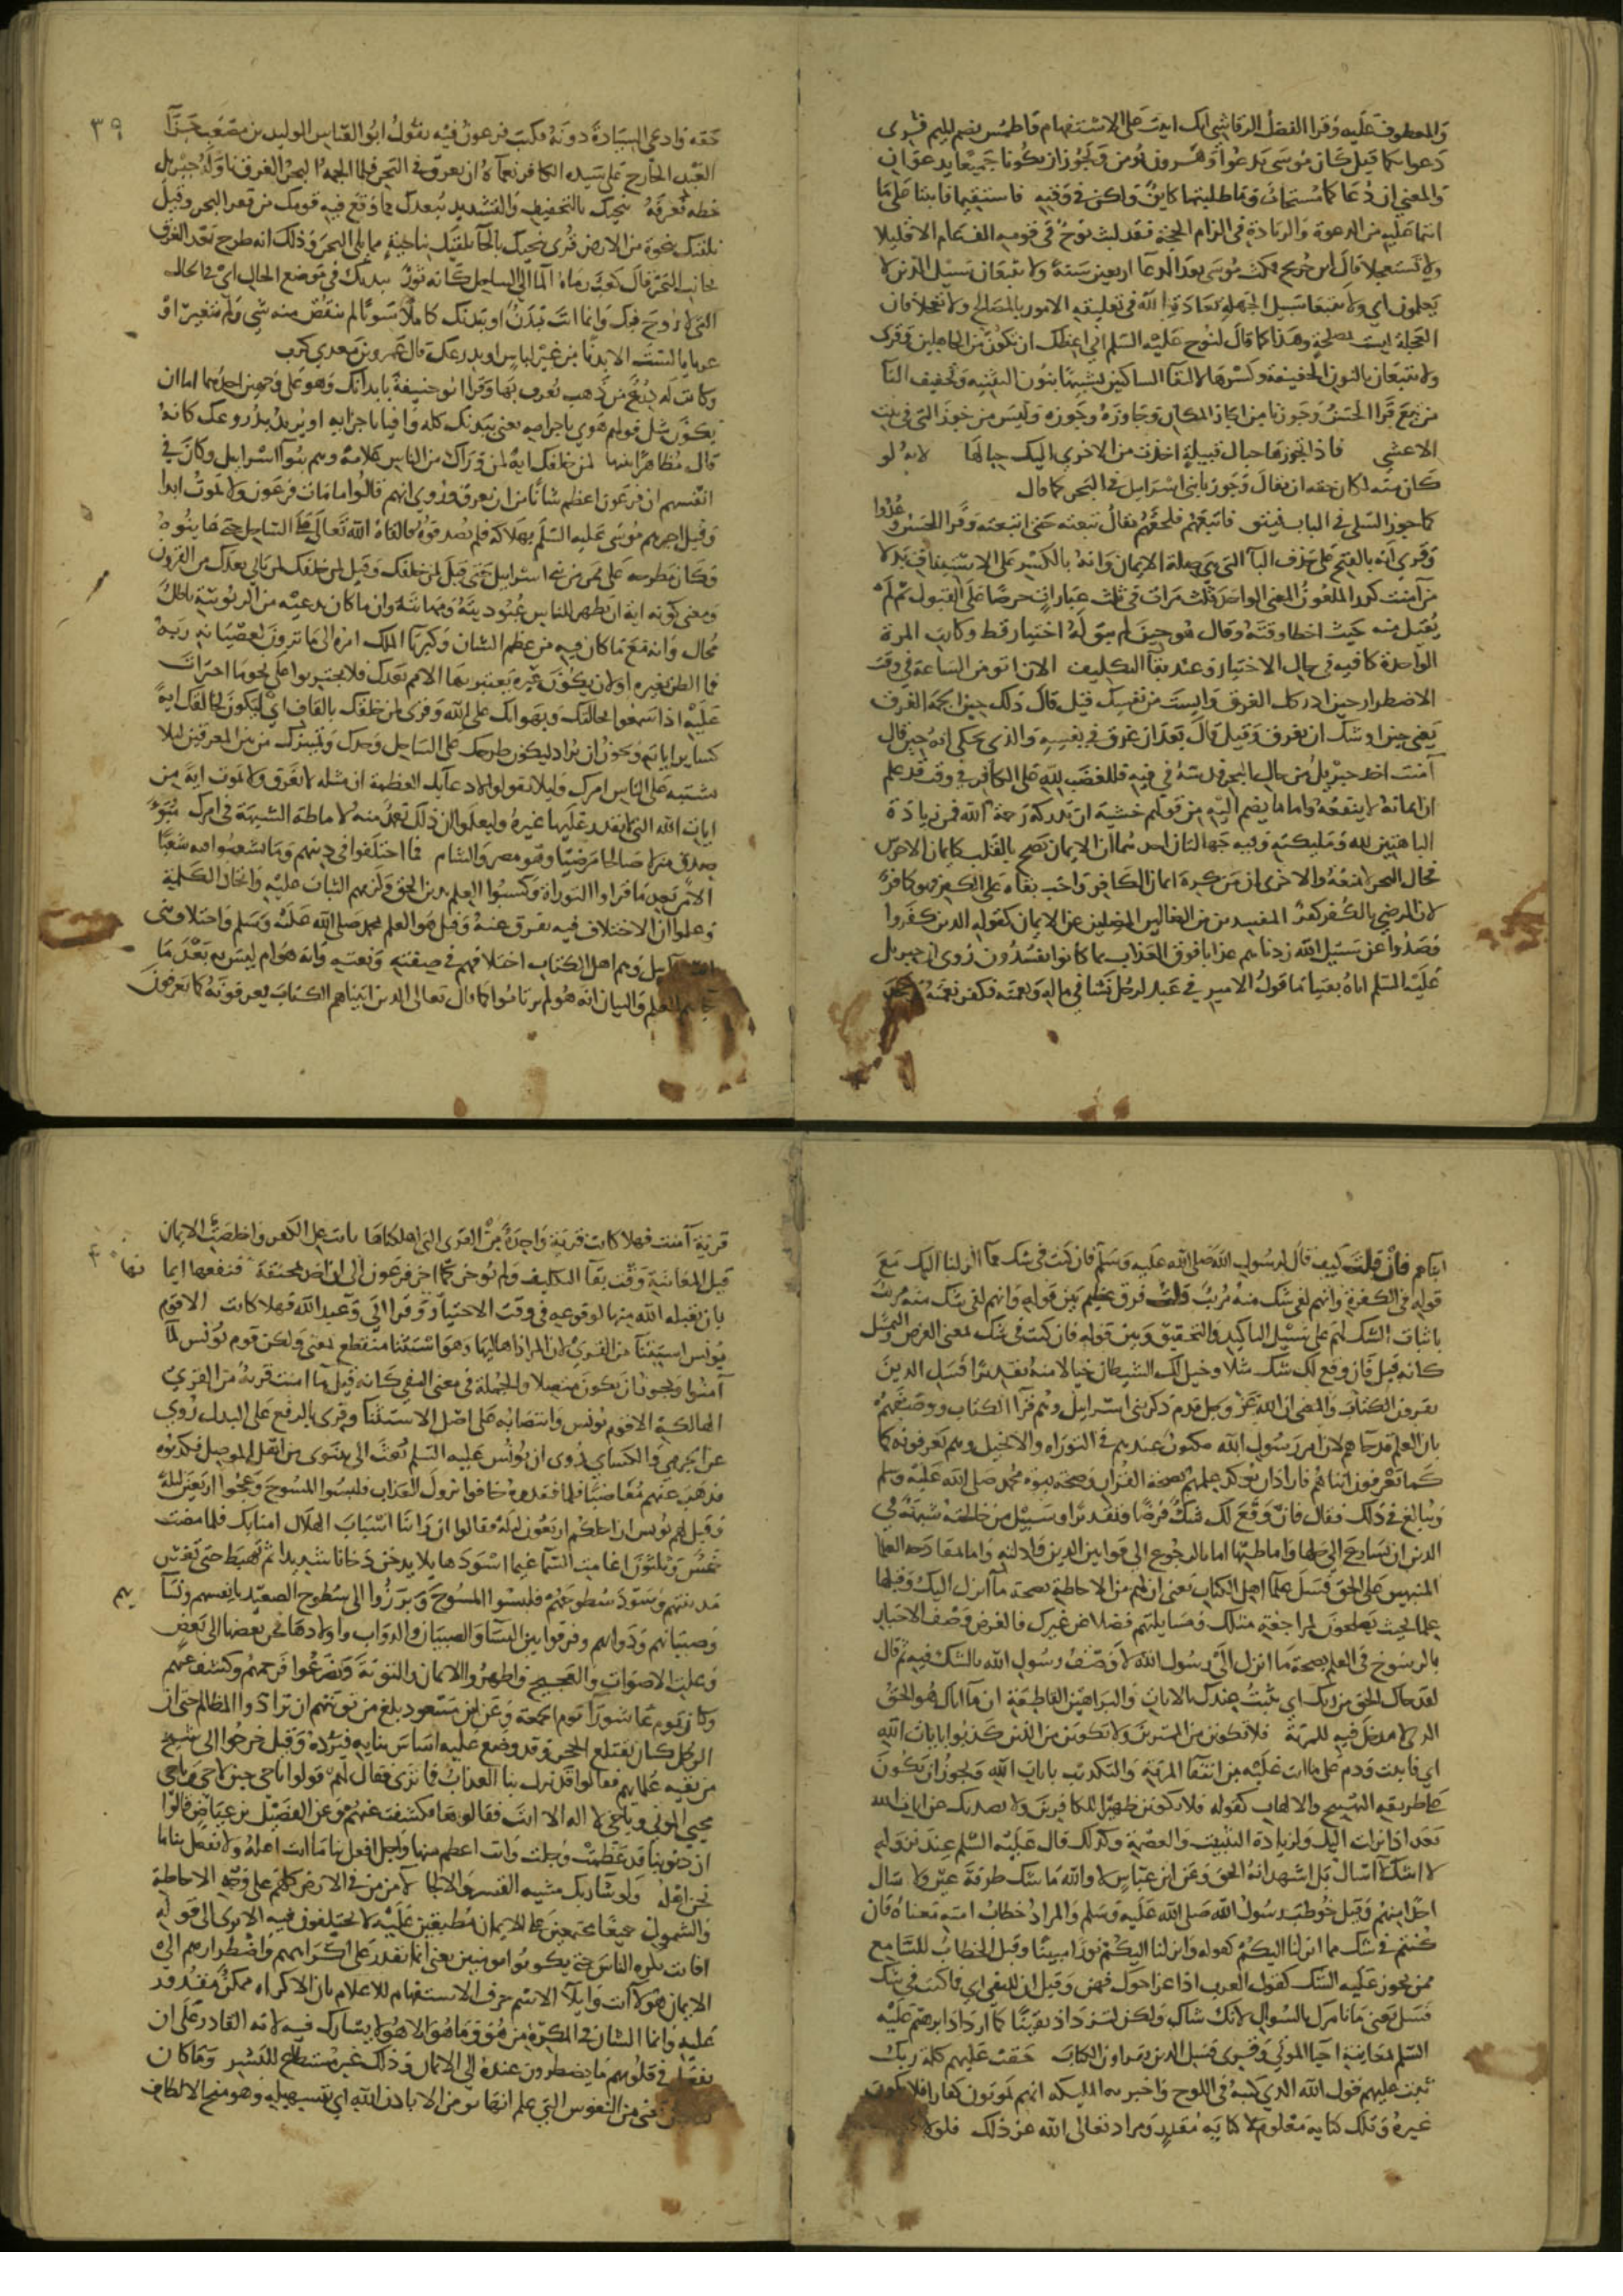 والمعطوف عليه وقرا الفضل الرقاشي اانك اتيت على الاستفهام واطمس بضم الميم قرى
دعوا تكما قيل كان موسى يدعوا وهرون يؤمن ويجوز ان يكونا جميعا يدعوان
والمعنى ان دعاكما مستجاب وما طلبتما كاين ولكن في وقته فاستقيما فاثبتا على ما
انتما عليه من الدعوة والزيادة في الزام الحجة فقد لبث نوح في قومه الف عام الا قليلا
ولا تستعجلا قال ابن جريج فمكث موسى بعد الدعا اربعين سنة ولا تتبعان سبيل الذين لا
يعلمون اي ولا تتبعا سبيل الجهلة بعادة الله في تعليقه الامور بالمصالح ولا تعجلا فان
العجلة ليست بمصلحة وهذا كما قال لنوح عليه السلم اني اعظك ان تكون من الجاهلين وقرى
ولا تتبعان بالنون الخفيفة وكسرها لالتقا الساكنين تشبيها بنون التثنية وتخفيف التا
من تبع قرا الحسن وجوزنا من اجاز المكان وجاوزه وجوزه وليس من جوز الذي في بيت
الاعشى فاذا تجوزها حبال قبيلة اخذت من الاخرى اليك حبالها لانه لو
كان منه لكان حقه ان يقال وجوزنا بني اسرايل في البحر كما قال
كما جوز السكي في الباب فيتق فاتبعهم فلحقهم يقال تبعته حتى اتبعته وقرا الحسن وعدوا
وقرى انه بالفتح على حذف البا التي هي صلة الايمان وانه بالكسر على الاستيناف بدلا
من آمنت كرر الملعون المعنى الواحد ثلث مرات في ثلث عبارات حرصا على القبول ثم لم
يقبل منه حيث اخطا وقته وقال هو حين لم يبق له اختيار قط وكانت المرة
الواحدة كافيه في حال الاختيار وعند بقا التكليف الان اتؤمن الساعة في وقت
الاضطرار حين ادركك الغرق وايست من نفسك قيل قال ذلك حين الجمه الغرق
يعني حين اوشك ان يغرق وقيل قال بعد ان غرق في نفسه والذي يحكى انه حين قال
آمنت اخذ جبريل من حال البحر فدسه في فيه فللغضب لله على الكافر في وقت قد علم
ان ايمانه لا ينفعه واما ما يضم اليه من قولهم خشية ان تدركه رحمة الله فمن زيادة
الباهتين لله وملئكته وفيه جهالتان احدىهما ان الايمان يصح بالقلب كايمان الاخرس
فحال البحر لا يمنعه والاخرى ان من كره ايمان الكافر واحب بقاه على الكفر فهو كافر
لان الرضى بالكفر كفر المفسدين من الضالين المضلين عن الايمان كقوله الذين كفروا
وصدوا عن سبيل الله زدناهم عذابا فوق العذاب بما كانوا يفسدون روى ان جبريل
عليه السلم اتاه بفتيا ما قول الامير في عبد لرجل نشا في ماله ونعمته فكفر نعمته وجحد
حقه وادعى السيادة دونه فكتب فرعون فيه يقول ابو العباس الوليد بن مصعب جزآ
العبد الخارج على سيده الكافر نعمآه ان يغرق في البحر فلما الجمه البحر الغرق ناوله جبريل
خطه فعرفه ننجيك بالتخفيف والتشديد نبعدك مما وقع فيه قومك من قعر البحر وقيل
نلقيك بنجوة من الارض وقرى ننحيك بالحآ نلقيك بناحية مما يلي البحر وذلك انه طرح بعد الغرق
بجانب البحر قال كعب رماه الما الى الساحل كانه ثور ببدنك في موضع الحال اي في الحال
التي لا روح فيك وانما انت بدن او ببدنك كاملا سويا لم ينقص منه شي ولم يتغير او
عريانا لست الا بدنا من غير لباس او بدرعك قال عمرو بن معدي كرب
وكانت له درع من ذهب يعرف بها وقرا ابو حنيفة بابدانك وهو على وجهين احدهما اما ان
يكون مثل قولهم هوى باجرامه يعني ببدنك كله وافيا باجزايه او يريد بدروعك كانه
قال مظاهرا بينها لمن خلفك اية لمن وراك من الناس علامة وهم بنوا اسرايل وكان في
انفسهم ان فرعون اعظم شانا من ان يغرق وروي انهم قالوا ما مات فرعون ولا يموت ابدا
وقيل اخبرهم موسى عليه السلم بهلاكه فلم يصدقوه فالقاه الله تعالى على الساحل حتى عاينوه
وكان مطرحه على ممر من بني اسرايل حتى قيل لمن خلفك وقيل لمن خلفك لمن ياتي بعدك من القرون
ومعنى كونه اية ان يظهر للناس عبوديته ومهانته وان ما كان يدعيه من الربوبية باطل
محال وانه مع ما كان فيه من عظم الشان وكبريا الملك امره الى ما ترون لعصيانه ربه
فما الظن بغيره او لان يكون عبرة يعتبر بها الامم بعدك فلا يجتريوا على نحو ما اجترات
عليه اذا سمعوا بحالك وبهوانك على الله وقرى لمن خلقك بالقاف اي ليكون لخالقك اية
كساير اياته ويجوز ان يراد ليكون طرحك على الساحل وحدك وتمييزك من بين المغرقين ليلا
يشتبه على الناس امرك وليلا يقولوا لادعآيك العظمة ان مثله لا يغرق ولا يموت اية من
ايات الله التي لا يقدر عليها غيره وليعلموا ان ذلك تعمد منه لاماطة الشبهة في امرك مبوّا
صدق منزلا صالحا مرضيا وهو مصر والشام فما اختلفوا في دينهم وما تشعبوا فيه شعبا
الا من بعد ما قراوا التوراة وكسبوا العلم بدين الحق ولزمهم الثبات عليه واتحاد الكلمة
وعلموا ان الاختلاف فيه تفرق عنه وقيل هو العلم بمحمد صلى الله عليه وسلم واختلاف بني
اسرآيل وهم اهل الكتاب اختلافهم في صفته ونعته وانه هو ام ليس به بعد ما
جاهم العلم والبيان انه هو لم يرتابوا كما قال تعالى الذين اتيناهم الكتاب يعرفونه كما يعرفون
٣٩
ابناهم فان قلت كيف قال لرسول الله صلى الله عليه وسلم فان كنت في شك مما انزلنا اليك مع
قوله في الكفرة وانهم لفي شك منه مريب قلت فرق عظيم بين قوله وانهم لفي شك منه مريب
باثبات الشك لهم على سبيل التاكيد والتحقيق وبين قوله فان كنت في شك بمعنى الفرض والتمثيل
كانه قيل فان وقع لك شك مثلا وخيل لك الشيطان خيالا منه تقديرا فسل الذين
يقرون الكتاب والمعنى ان الله عز وجل قدم ذكر بني اسرايل وهم قرآ الكتاب ووصفهم
بان العلم قد جاهم لان امر رسول الله مكتوب عندهم في التوراه والانجيل وهم يعرفونه كما
كما يعرفون ابناهم فاراد ان يوكد علمهم بصحة القران وصحة نبوة محمد صلى الله عليه وسلم
ويبالغ في ذلك فقال فان وقع لك شك فرضا وتقديرا وسبيل من خالجته شبهة في
الدين ان يسارع الى حلها واماطتها اما بالرجوع الى قوانين الدين وادلته واما بمقادحة العلما
المنبهين على الحق فسل علما اهل الكتاب يعني انهم من الاحاطة بصحة ما انزل اليك وقتلها
علما بحيث يصلحون لمراجعة مثلك ومسايلتهم فضلا عن غيرك فالغرض وصف الاحبار
بالرسوخ في العلم بصحة ما انزل الى رسول الله لا وصف رسول الله بالشك فيه ثم قال
لقد جاك الحق من ربك اي ثبت عندك بالايات والبراهين القاطعة ان ما اتاك هو الحق
الذي لا مدخل فيه للمرية فلا تكونن من الممترين ولا تكونن من الذين كذبوا بايات الله
اي فاثبت ودم على ما انت عليه من انتفا المرية والتكذيب بايات الله ويجوز ان يكون
على طريقة التهييج والالهاب كقوله فلا تكونن ظهيرا للكافرين ولا يصدنك عن ايات الله
بعد اذ انزلت اليك ولزيادة التثبيت والعصمة وكذلك قال عليه السلم عند نزوله
لا اشك ولا اسال بل اشهد انه الحق وعن ابن عباس لا والله ما شك طرفة عين ولا سال
احدا منهم وقيل خوطب رسول الله صلى الله عليه وسلم والمراد خطاب امته ومعناه فان
كنتم في شك مما انزلنا اليكم كقوله وانزلنا اليكم نورا مبينا وقيل الخطاب للسامع
ممن يجوز عليه الشك كقول العرب اذا عز اخوك فهن وقيل ان للنفي اي فما كنت في شك
فسل يعني ما نامرك بالسوال لانك شاك ولكن لتزداد يقينا كما ازداد ابرهيم عليه
السلم بمعاينة احيا الموتى وقرى فسل الذين يقراون الكتاب حقت عليهم كلمة ربك
ثبت عليهم قول الله الذي كتبه في اللوح واخبر به المليكه انهم يموتون كفارا فلا يكون
غيره وتلك كتابة معلوم لا كتابة مقدر ومراد تعالى الله عن ذلك فلولا كانت
قرية آمنت فهلا كانت قرية واحدة من القرى التي اهلكناها تابت عن الكفر واخلصت الايمان
قبل المعاينة وقت بقآ التكليف ولم توخر كما اخر فرعون الى ان اخذ بمخنقه فنفعها ايما نها
بان يقبله الله منها لوقوعه في وقت الاختيار وقرا ابي وعبد الله فهلا كانت الا قوم
يونس استثنآ من القرى لان المراد اهاليها وهو استثنا منقطع بمعنى ولكن قوم يونس لما
آمنوا ويجوز ان يكون متصلا والجملة في معنى النفي كانه قيل ما امنت قرية من القرى
الهالكة الا قوم يونس وانتصابه على اصل الاستثنا وقرى بالرفع على البدل روي
عن الجرمي والكساي روى ان يونس عليه السلم بعث الى نينوى من ارض الموصل فكذبوه
فذهب عنهم مغاضبا فلما فقدوه خافوا نزول العذاب فلبسوا المسوح وعجوا اربعين ليلة
وقيل لهم يونس ان اجلكم اربعون ليلة فقالوا ان راينا اسباب الهلاك امنا بك فلما مضت
خمس وثلثون اغامت السما غيما اسود هايلا يدخن دخانا شديدا ثم يهبط حتى يغشى
مدينتهم ويسود سطوحهم فلبسوا المسوح وبرزوا الى سطوح الصعيد بانفسهم ونسآ يهم
وصبيانهم ودوابهم وفرقوا بين النسا والصبيان والدواب واولادها فحن بعضها الى بعض
وعلت الاصوات والعجيج واظهروا الايمان والتوبة وتضرعوا فرحمهم وكشف عنهم
وكان يوم عاشورآ يوم الجمعة وعن ابن مسعود بلغ من توبتهم ان ترادوا المظالم حتى ان
الرجل كان يقتلع الحجر وقد وضع عليه اساس بنايه فيرده وقيل خرجوا الى شيخ
من بقية علمايهم فقالوا قد نزل بنا العذاب فما ترى فقال لهم قولوا يا حي حين لا حي ويا حي
محيي الموتى ويا حي لا اله الا انت فقالوها فكشفت عنهم وعن الفضيل بن عياض قالوا
ان ذنوبنا قد عظمت وجلت وانت اعظم منها واجل افعل بنا ما انت اهله ولا تفعل بنا ما
نحن اهله ولو شا ربك مشيه القسر والالجا لامن من في الارض كلهم على وجه الاحاطة
والشمول جميعا مجتمعين على الايمان مطبقين عليه لا يختلفون فيه الا ترى الى قوله
افانت تكره الناس حتى يكونوا مومنين يعني انما يقدر على اكراههم واضطرارهم الى
الايمان هو لا انت وايلآ الاسم حرف الاستفهام للاعلام بان الاكراه ممكن مقدور
عليه وانما الشان في المكره من هو وما هو الا هو لا يشارك فيه لانه القادر على ان
يفعل في قلوبهم ما يضطرون عنده الى الايمان وذلك غير مستطاع للبشر وما كان
لنفس يعني من النفوس التي علم انها تؤمن الا باذن الله اي بتسهيله وهو منح الالطاف
٤٠